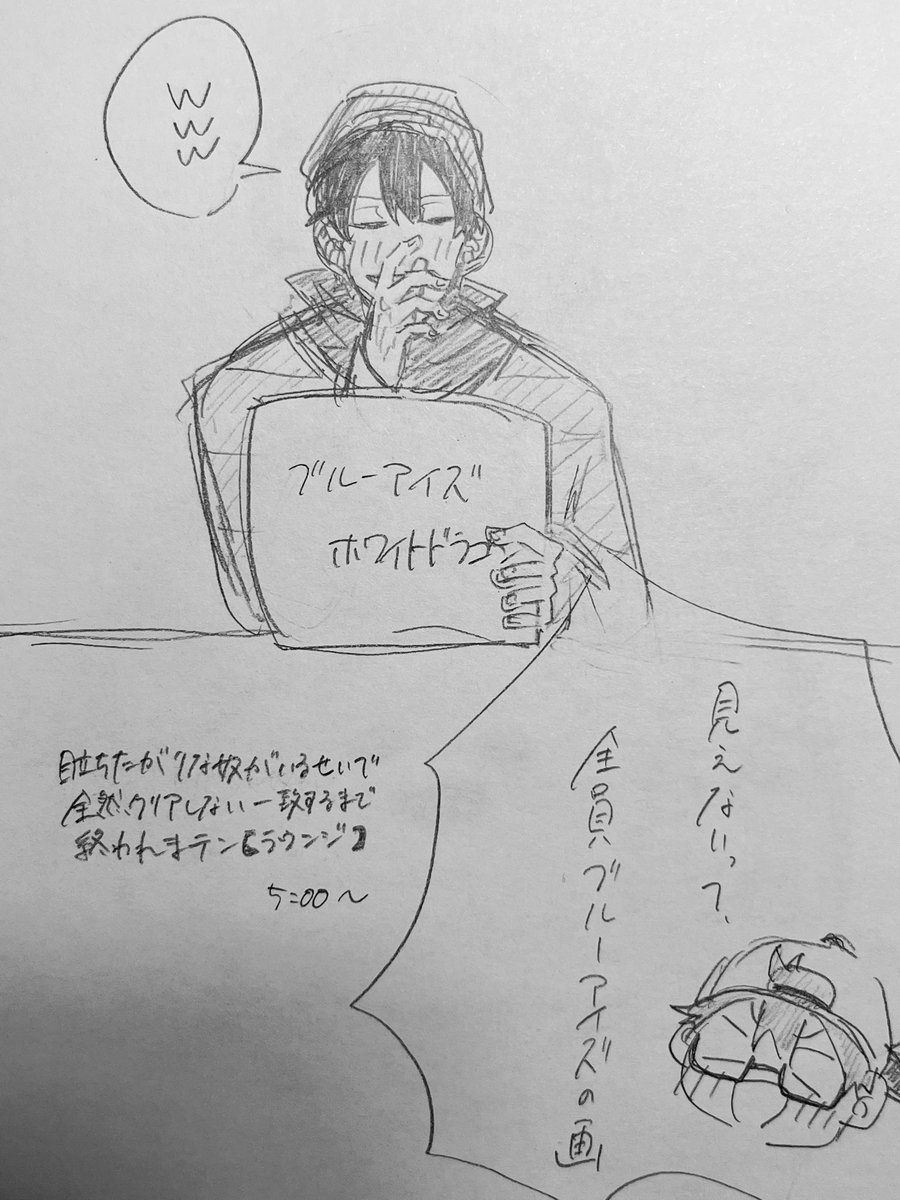 w
w
w
ブルーアイズ
ホワイトドラゴ
見えないって、
全員ブルーアイズの画
目立ちたがりな奴がいるせいで
全然クリアしない一致するまで
終われまテン【ラウンジ】
5:00～